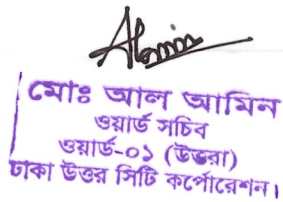 Alamin
মোঃ আল আমিন
ওয়ার্ড সচিব
ওয়ার্ড-০১ (উত্তরা)
ঢাকা উত্তর সিটি কর্পোরেশন।